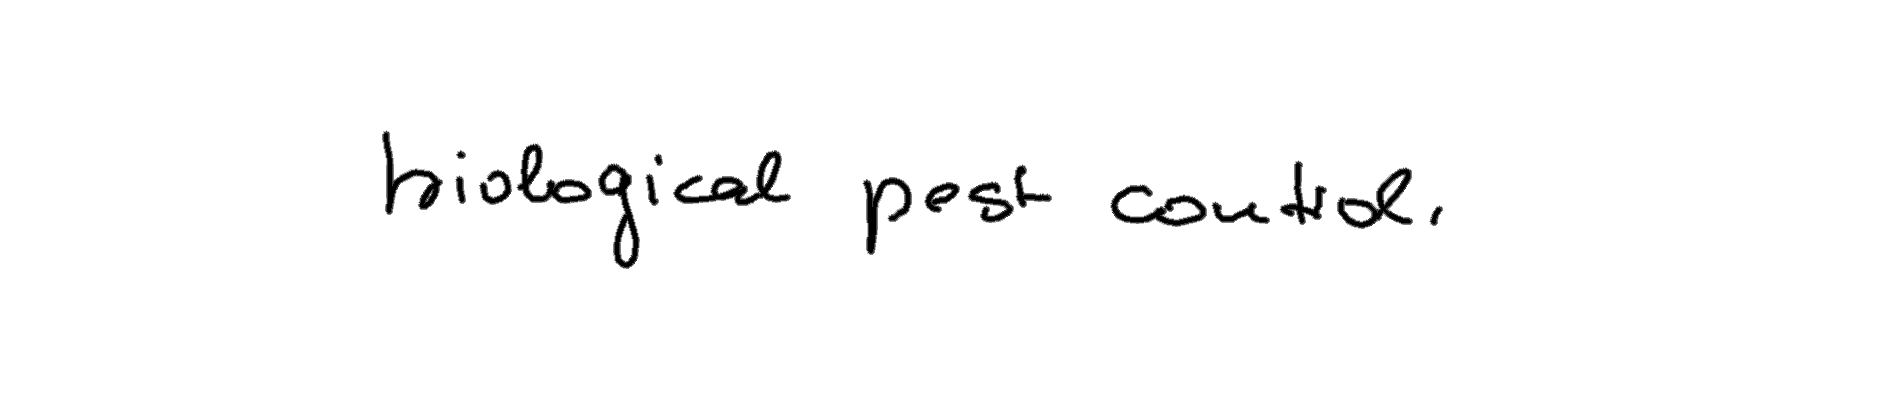 biological pest control.